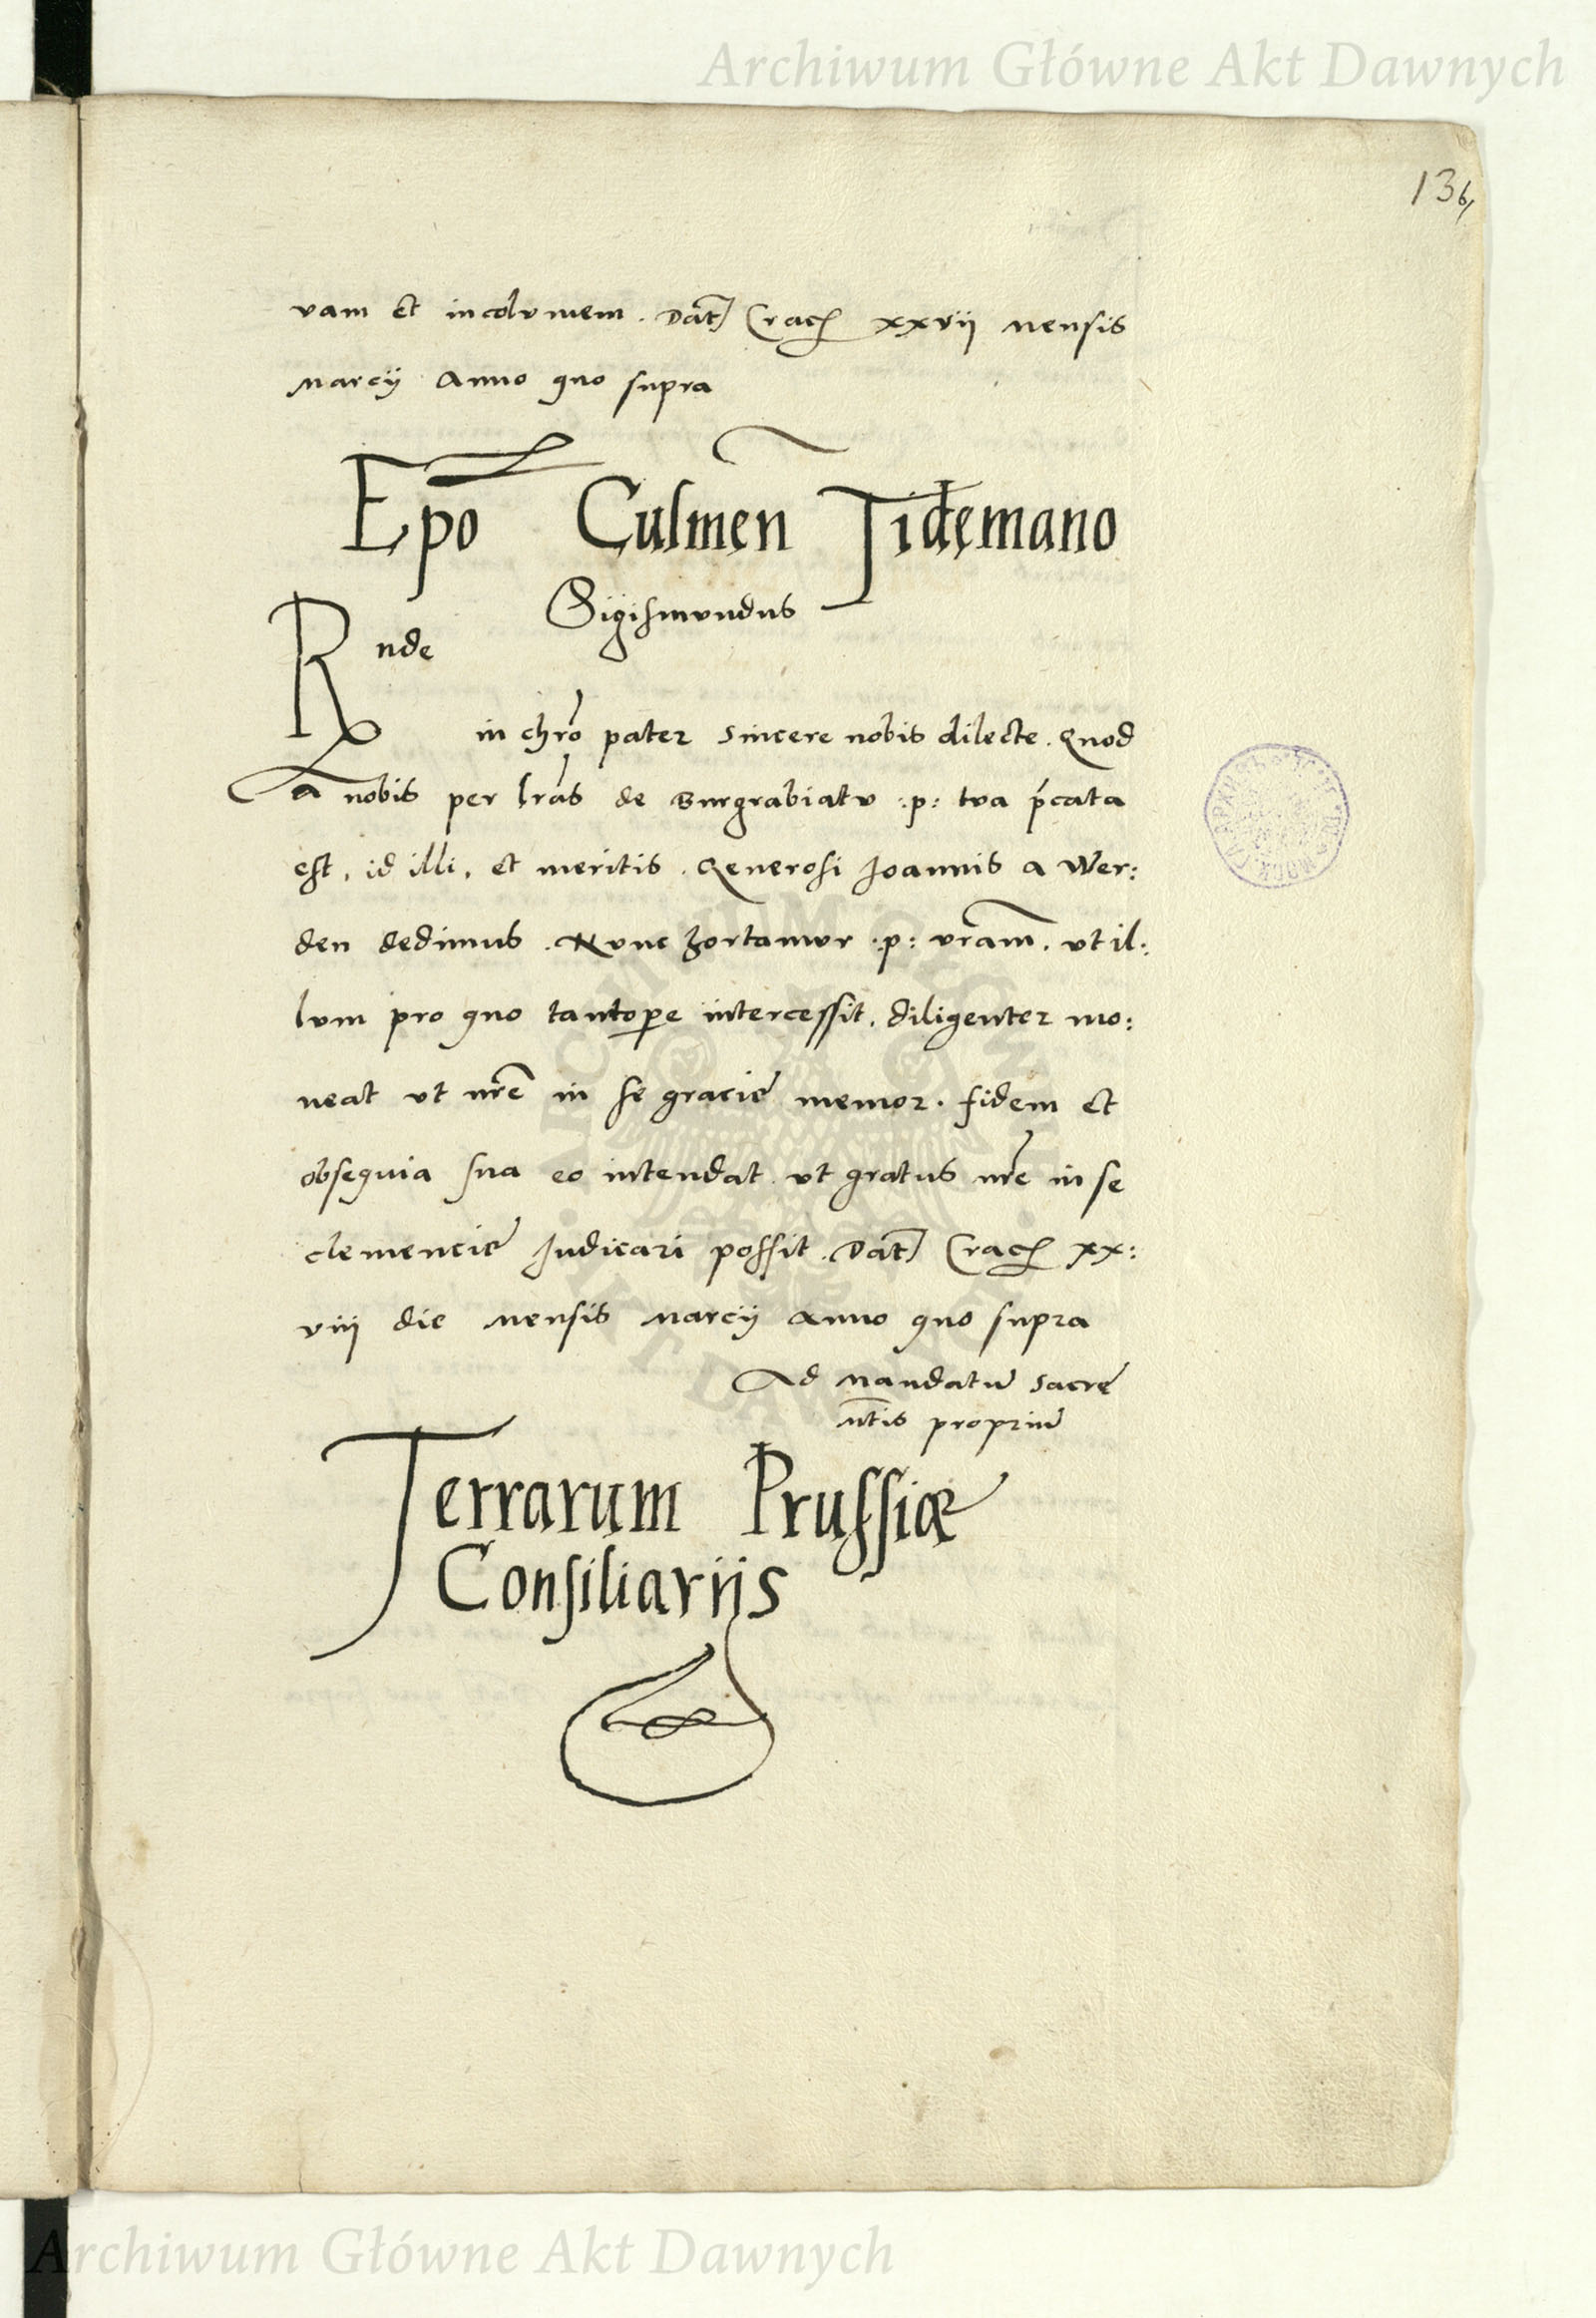 Archiwum Główne Akt Dawnych
136
vam et incolumem. Dat Crac xxvii mensis
Marcii Anno quo supra
Epo Culmen Tidemano
Sigismundus
Rnde
in chro pater sincere nobis dilecte. Quod
a nobis per lras de Burgrabiatu :p: tva pcata
est, id illi, et meritis. Generosi Joannis a Wer:
den dedimus. Nunc hortamur :p: vram. vt il:
lvm pro quo tantope intercessit, diligenter mo:
neat vt nre in se gracie memor. fidem et
obsequia sua eo intendat. vt gratus nre in se
clemencie Judicari possit. Dat Crac xx:
viii die mensis Marcii Anno quo supra
Ad Mandatu sacre
mtis propriu
Terrarum Prussiæ
Consiliariis
Archiwum Główne Akt Dawnych